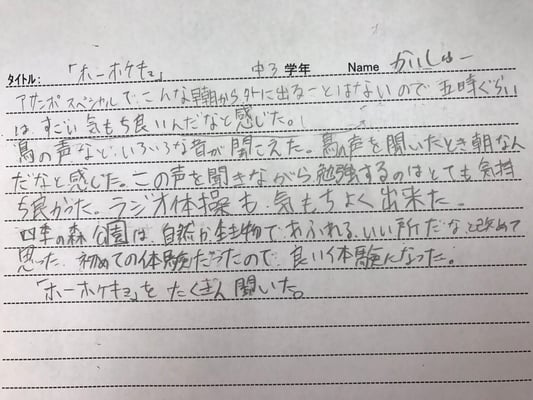 タイトル: 「ホーホケキョ」 中3 学年 Name かいしゅー
アサンポスペシャルでこんな早朝から外に出ることはないので五時ぐらい
はすごい気もち良いんだなと感じた。
鳥の声などいろいろな音が聞こえた。鳥の声を聞いたとき朝なん
だなと感じた。この声を聞きながら勉強するのはとても気持
ち良かった。ラジオ体操も気もちよく出来た。
四季の森公園は自然が生き物であふれるいい所だなと改めて
思った。初めての体験だったので、良い体験になった。
「ホーホケキョ」をたくさん聞いた。